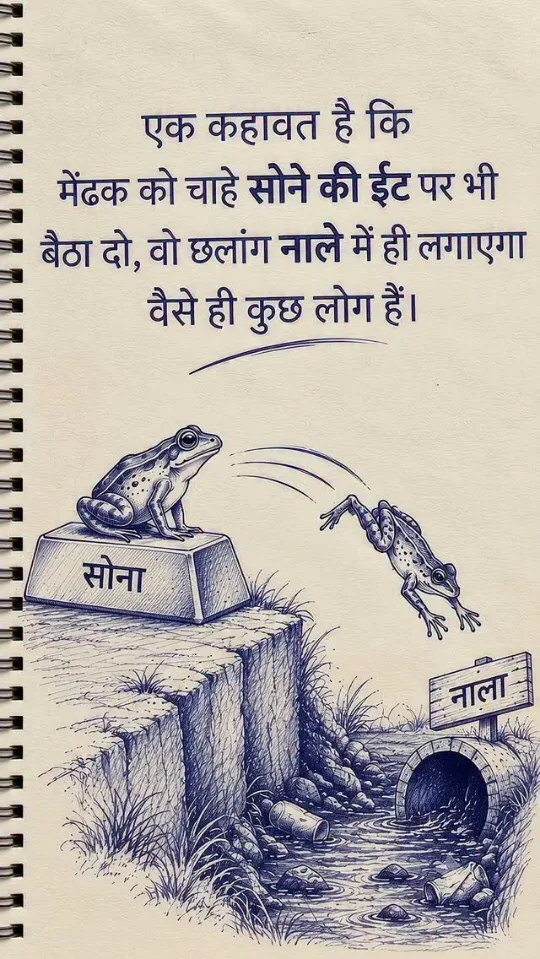 एक कहावत है कि
मेंढक को चाहे सोने की ईट पर भी
बैठा दो, वो छलांग नाले में ही लगाएगा
वैसे ही कुछ लोग हैं।
सोना
नाला